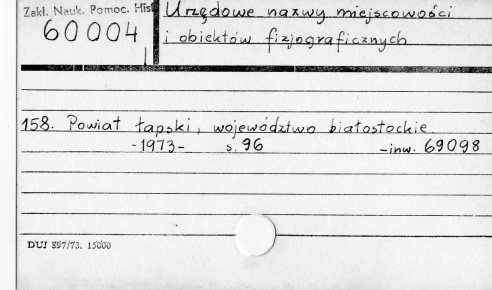 Zakł. Nauk. Pomoc. Hist
60004
Urzędowe nazwy miejscowości
i obiektów fizjograficznych
158. Powiat łapski, województwo białostockie.
-1973- s. 96 -inw. 69098
DUJ 897/73. 15000